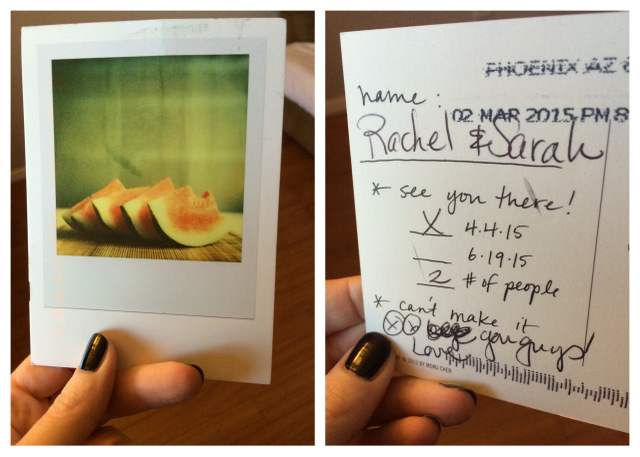 PHOENIX AZ
name:
02 MAR 2015 PM 8
Rachel & Sarah
* see you there!
X 4.4.15
6.19.15
2 # of people
* can't make it
you guys!
Love
2013 BY MONG CHEN